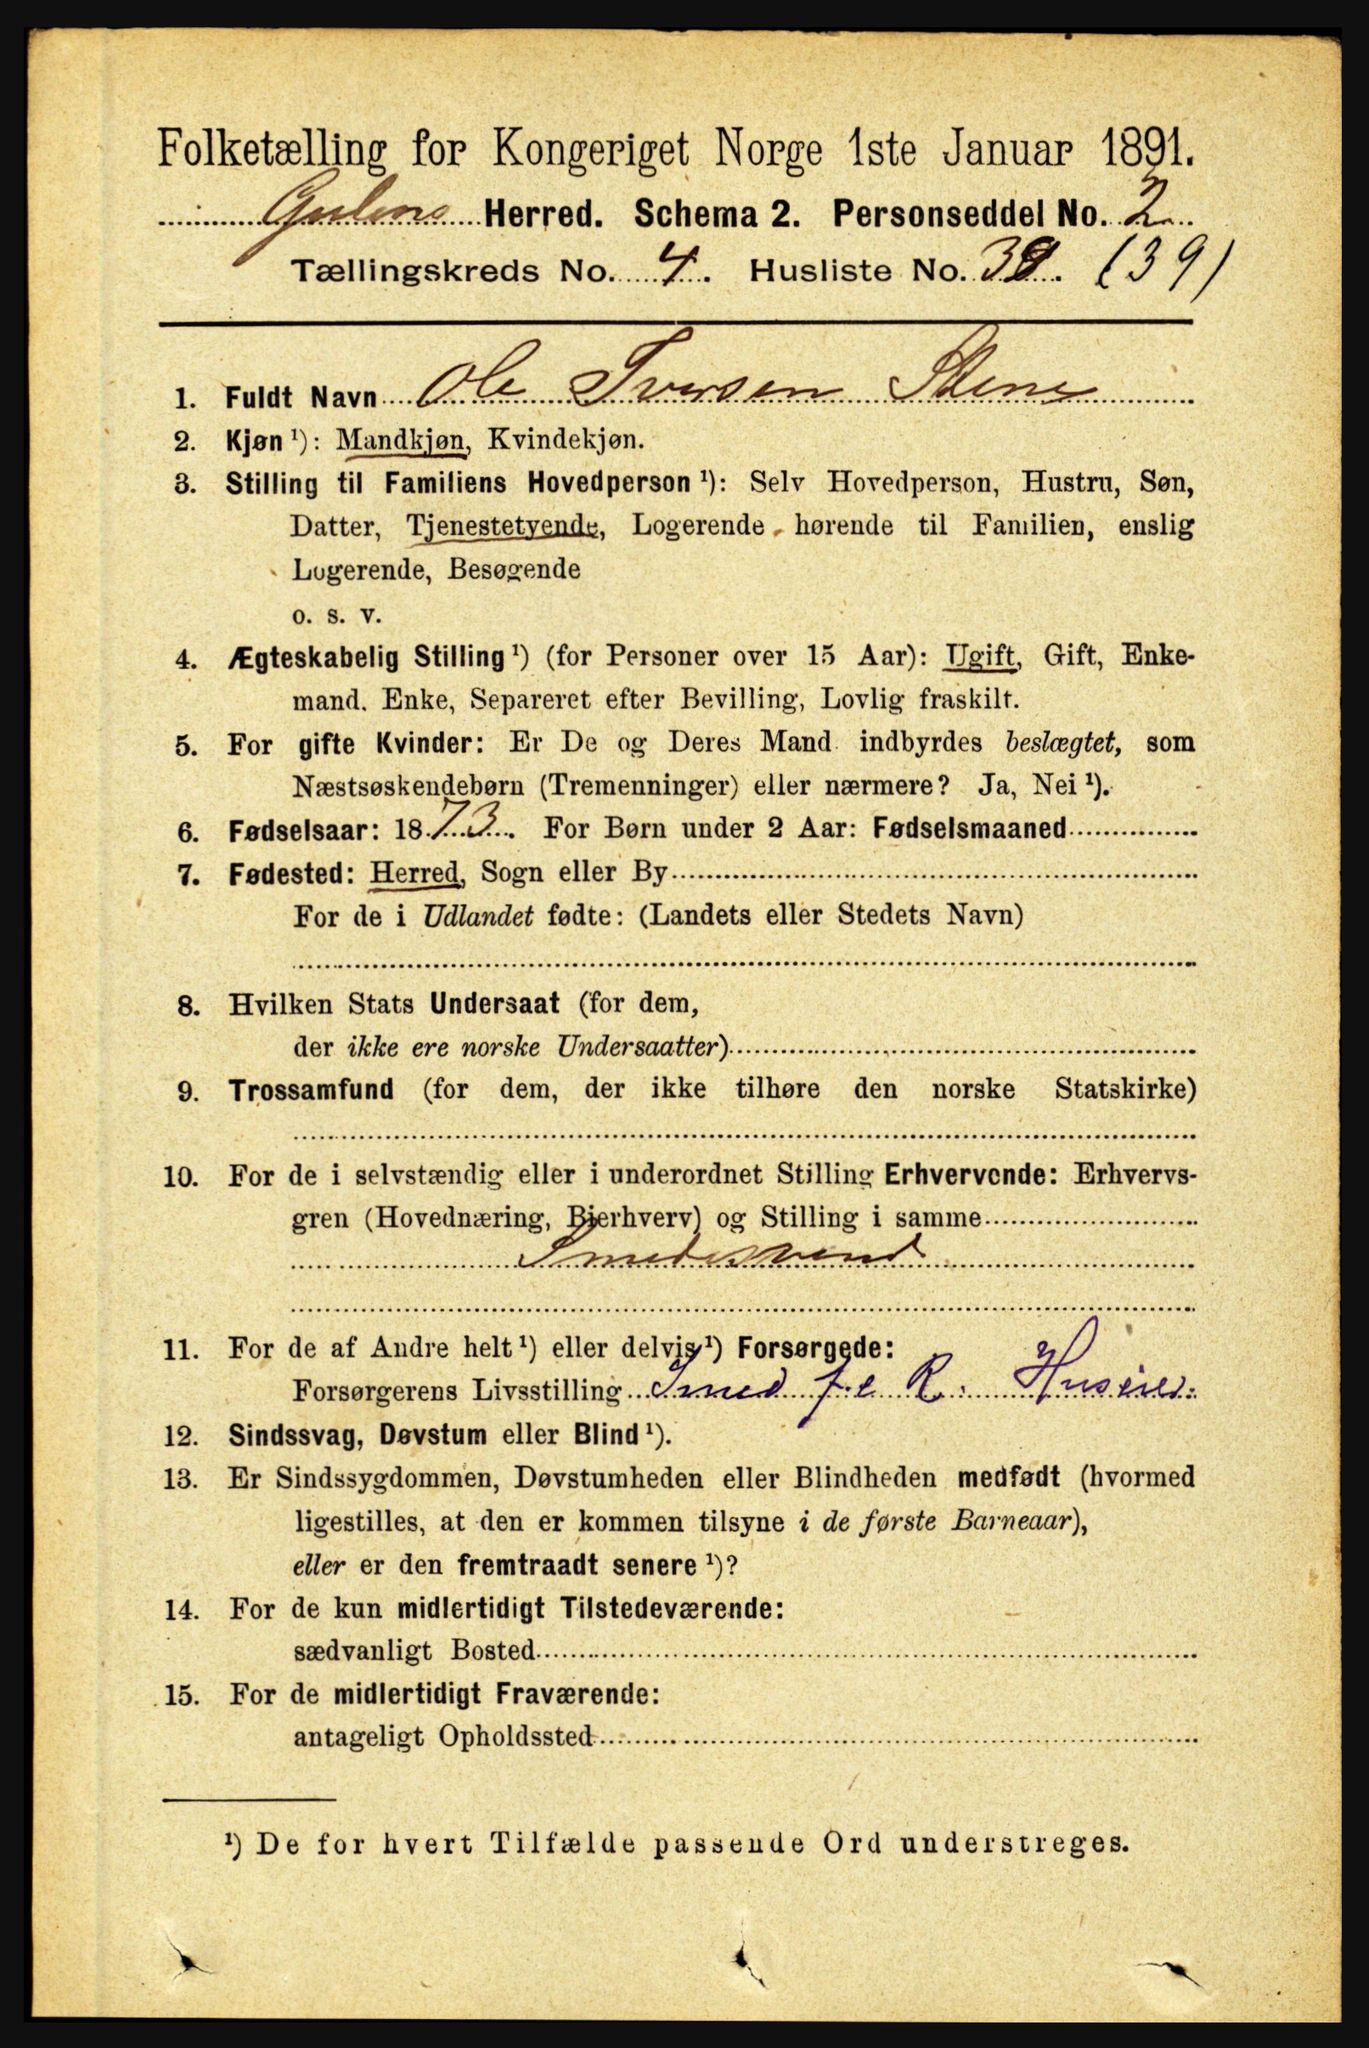 Folketælling for Kongeriget Norge 1ste Januar 1891.
Gulens Herred. Schema 2. Personseddel No. 2
Tællingskreds No. 4. Husliste No. 39. (39)
1. Fuldt Navn Ole Iversen Stene
2. Kjøn ¹): Mandkjøn, Kvindekjøn.
3. Stilling til Familiens Hovedperson ¹): Selv Hovedperson, Hustru, Søn,
Datter, Tjenestetyende, Logerende hørende til Familien, enslig
Logerende, Besøgende
o. s. v.
4. Ægteskabelig Stilling ¹) (for Personer over 15 Aar): Ugift, Gift, Enke-
mand, Enke, Separeret efter Bevilling, Lovlig fraskilt.
5. For gifte Kvinder: Er De og Deres Mand indbyrdes beslægtet, som
Næstsøskendebørn (Tremenninger) eller nærmere? Ja, Nei ¹).
6. Fødselsaar: 1873. For Børn under 2 Aar: Fødselsmaaned
7. Fødested: Herred, Sogn eller By
For de i Udlandet fødte: (Landets eller Stedets Navn)
8. Hvilken Stats Undersaat (for dem,
der ikke ere norske Undersaatter)
9. Trossamfund (for dem, der ikke tilhøre den norske Statskirke)
10. For de i selvstændig eller i underordnet Stilling Erhvervende: Erhvervs-
gren (Hovednæring, Bierhverv) og Stilling i samme
Smedesvend
11. For de af Andre helt ¹) eller delvis ¹) Forsørgede:
Forsørgerens Livsstilling Smed f. e R. Huseier.
12. Sindssvag, Døvstum eller Blind ¹).
13. Er Sindssygdommen, Døvstumheden eller Blindheden medfødt (hvormed
ligestilles, at den er kommen tilsyne i de første Barneaar),
eller er den fremtraadt senere ¹)?
14. For de kun midlertidigt Tilstedeværende:
sædvanligt Bosted
15. For de midlertidigt Fraværende:
antageligt Opholdssted
¹) De for hvert Tilfælde passende Ord understreges.